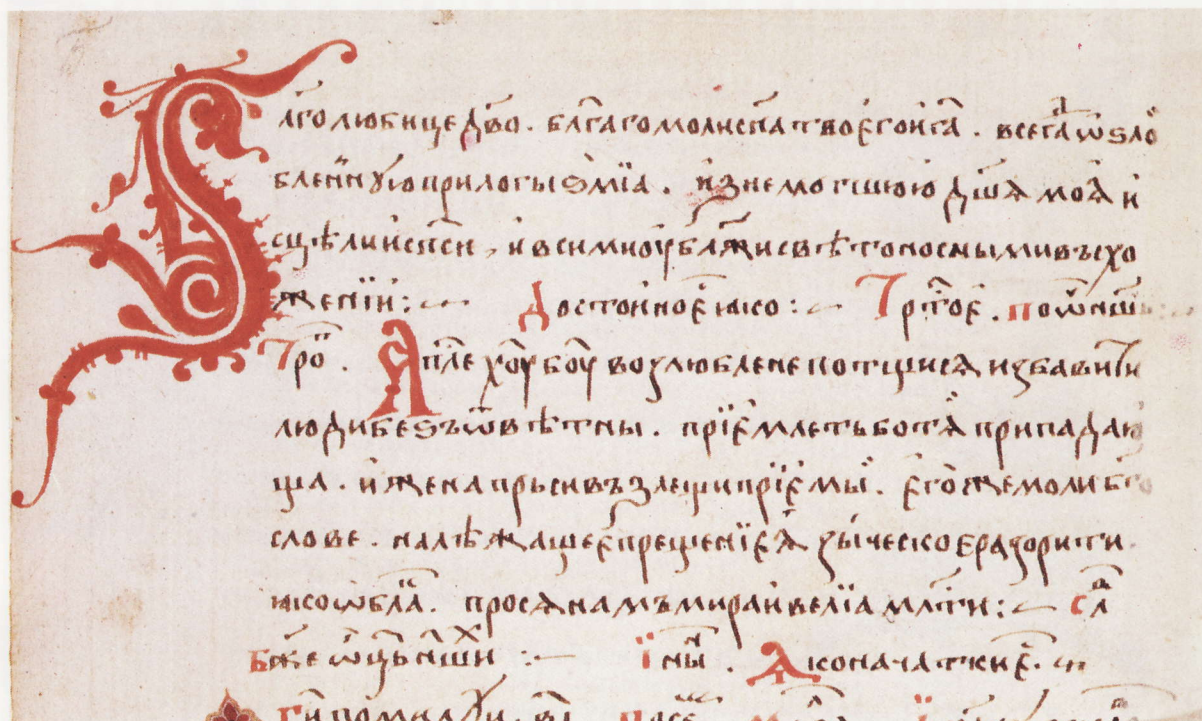 Благолюбице дв҃о. бл҃гаго моли сн҃а твоег҃о и г҃а. всегда ѿ ѕло
бленнꙋю прилогы ѕмїа. изнемогшюю дш҃ѧ моѧ и
сцѣли и сп҃си, и всим ми оублажи свѣтоносными въсхо
жении:~ Достойно е҆ ꙗко:~ Трⷪ҇тое. по ѿнш҃ь:~
Трⷪ҇. Апⷭ҇ле хоу҃ боу҃ возлюблене потщисѧ избавити
люди безъѿвѣтны. прїемлеть бо тѧ припадаю
ща. и же на прьси възлещи прїемы. егоже моли бг҃о
слове. належащее прещенїе ѧзыческое разорити
ꙗко ѡблⷶ. просѧ намъ мира и велїа млⷭ҇ти:~ Слⷶ
Бж҃е ѿц҃ь нш҃их :~ їны. Ꙗко начатки е҆.
Ги҃ помилꙋи.